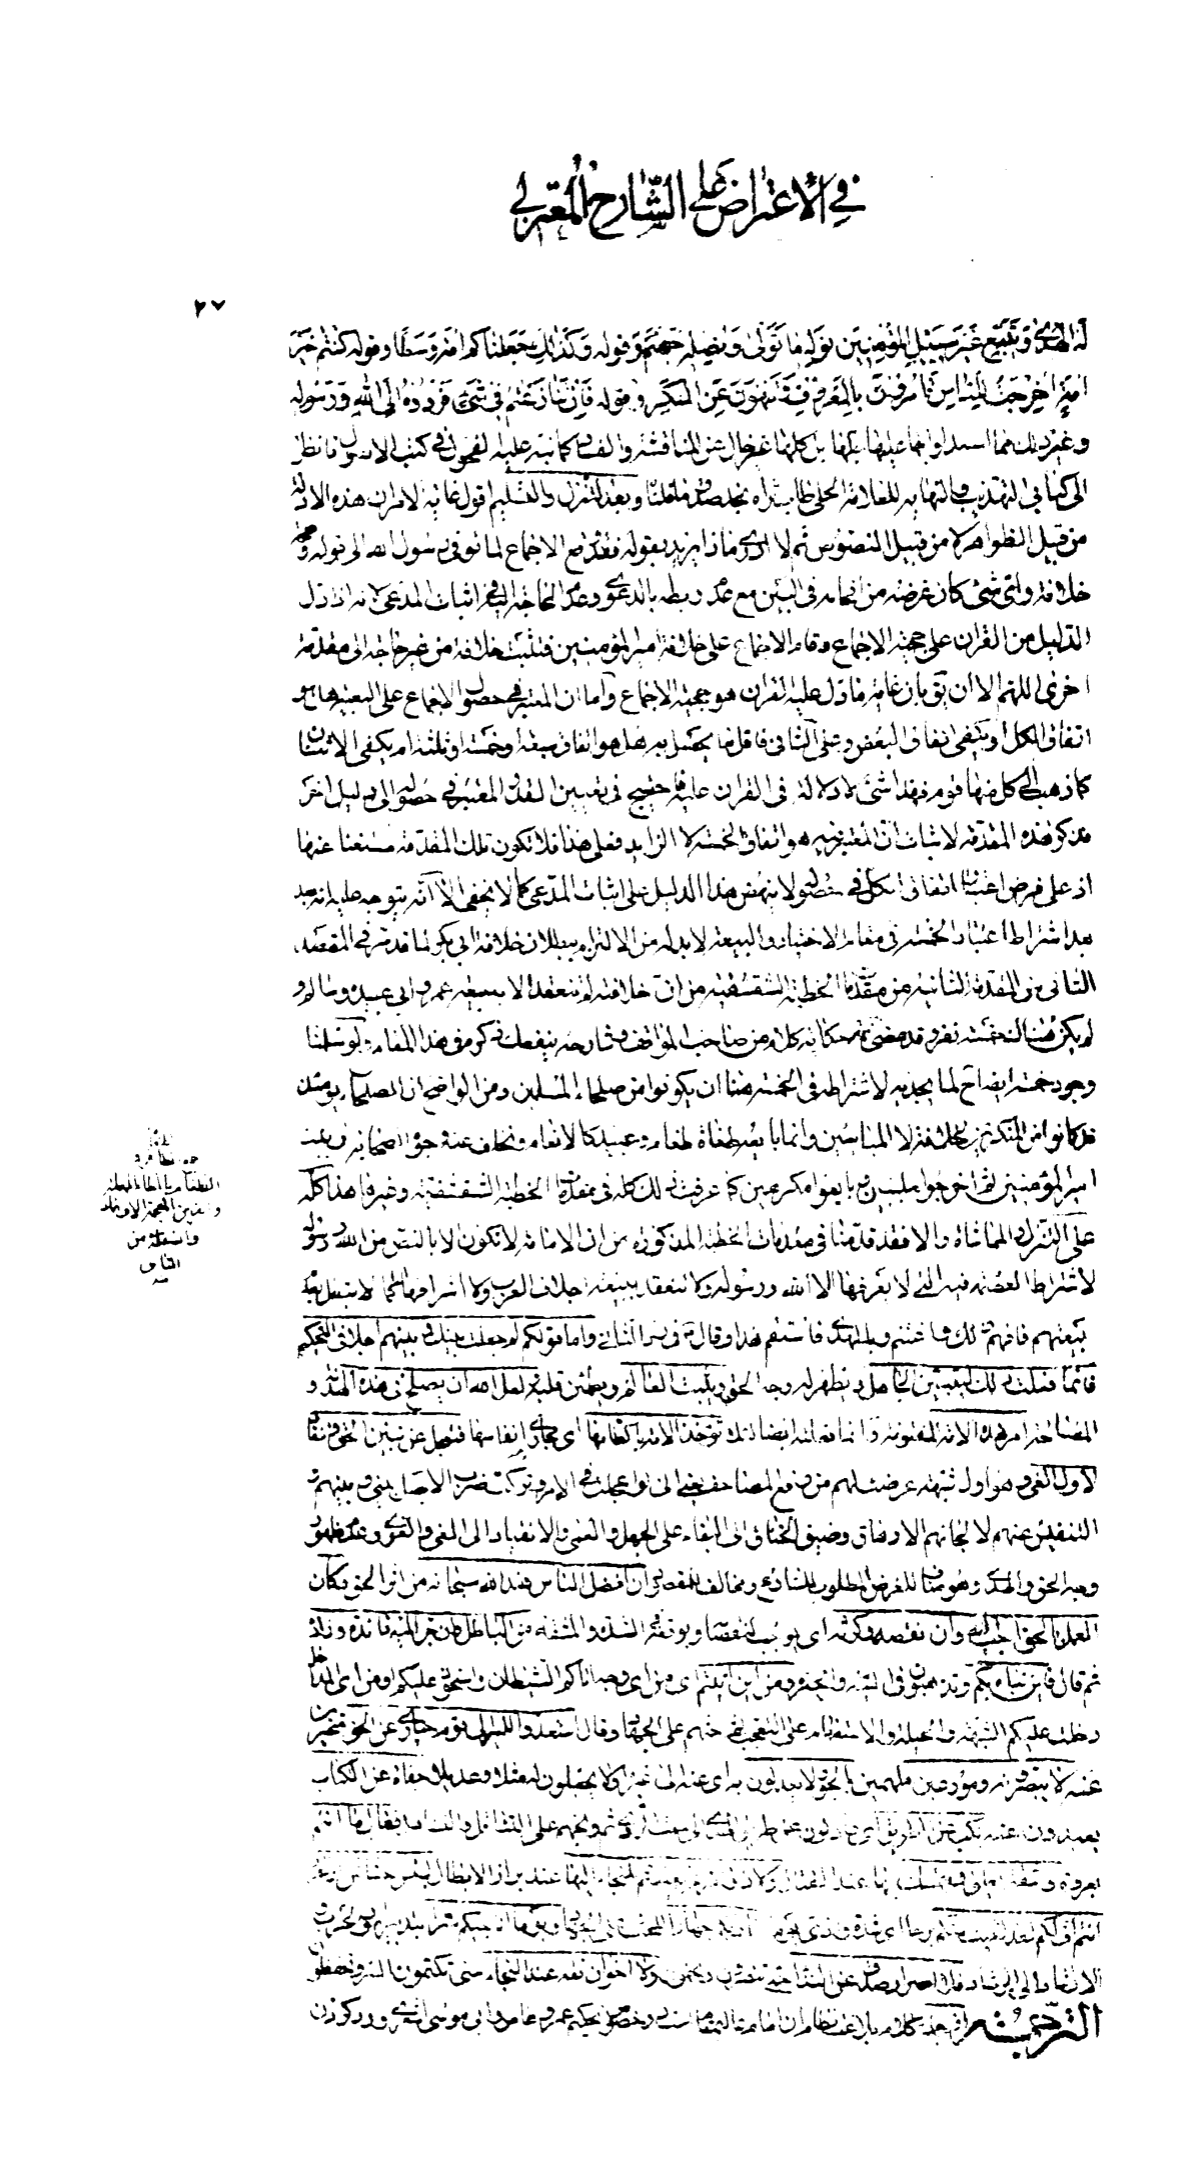 في الاعتراض على الشارح المعتزلي
٢٧
له الهدى ويتبع غير سبيل المؤمنين نوله ما تولى ونصله جهنم وقوله وكذلك جعلناكم امة وسطا وقوله كنتم خير
امة اخرجت للناس تأمرون بالمعروف وتنهون عن المنكر وقوله فان تنازعتم في شيء فردوه الى الله ورسوله
وغير ذلك مما استدلوا بها عليها بل كلها غير خال عن المناقشة والفساد كما نبه عليه الفحول في كتب الاصول فانظر
الى كتابي التهذيب والنهاية للعلامة الحلي طاب ثراه تجد صدق ما قلنا وبعد التنزل والتسليم اقول غاية الامر ان هذه الادلة
من قبيل الظواهر لا من قبيل النصوص ثم لا ادري ماذا يريد بقوله فقد وقع الاجماع لما توفي رسول الله الى قوله وصحة
خلافته واي شيء كان غرضه من اتيانه في البين مع عدم ربطه بالدعوى وعدم الحاجة اليه في اثبات المدعى لانه اذا دل
الدليل من القران على حجية الاجماع وقام الاجماع على خلافة امير المؤمنين فتثبت خلافته من غير حاجة الى مقدمة
اخرى اللهم الا ان يق بان غاية ما دل عليه القران هو حجية الاجماع واما ان المعتبر في حصول الاجماع على البيعة هل هو
اتفاق الكل او يكفي اتفاق البعض وعلى الثاني فاقل ما يحصل به هل هو اتفاق سبعة او خمسة او ثلثة ام يكفي الاثنان
كما ذهب الى كل منها قوم فهذا شيء لا دلالة في القران عليه فاحتيج في تعيين القدر المعتبر في حصوله الى دليل اخر
فذكر هذه المقدمة لاثبات ان المعتبر فيه هو اتفاق الخمسة لا الزايد فعلى هذا فلا تكون تلك المقدمة مستغنا عنها
اذ على فرض اعتبار اتفاق الكل في حصوله لا ينهض هذا الدليل على اثبات المدعى كما لا يخفى الا انه يتوجه عليه انه بعد
بعد اشتراط اعتبار الخمسة في مقام الاختيار والبيعة لابد له من الالتزام ببطلان خلافة ابي بكر لما قد مر في المقصد
الثاني من المقدمة الثانية من مقدمات الخطبة الشقشقية من ان خلافته لم تنعقد الا ببيعة عمر وابي عبيدة وسالم و
لم يكن هنالك خمسة نفر وقد مضى ثمة حكاية كلام من صاحب المواقف وشارحه ينفعك ذكره في هذا المقام ولو سلمنا
وجود خمسة ايضا لما يجديه لاشتراطه في الخمسة هنا ان يكونوا من صلحاء المسلمين ومن الواضح ان الصلحاء يومئذ
قد كانوا من المنكرين لخلافته لا المبايعين وانما بايعه طغاة طغام وعبيد كالانعام وتخلف عنه جل الصحابة وبيت
امير المؤمنين ثم اخرجوا ملببين وبايعوا مكرهين كما عرفت ذلك كله في مقدمات الخطبة الشقشقية وغيرها هذا كله
على التنزل والمماشاة والا فقد قدمنا في مقدمات الخطبة المذكورة من ان الامامة لا تكون الا بالنص من الله ورسوله
لاشتراط العصمة فيه التي لا يعرفها الا الله ورسوله ولا تنعقد ببيعة اجلاف العرب ولا اشرافها كما لا تبطل بعدم
بيعتهم فافهم ذلك واغتنم وبالهدى فاستقم هذا وقال في سر الثاني واما قولكم لم جعلت بينك وبينهم اجلا في التحكيم
فانما فعلت ذلك ليتبين الجاهل ويظهر له وجه الحق ويثبت العالم ويطمئن قلبه ولعل الله ان يصلح في هذه الهدنة و
المصالحة امر هذه الامة المفتونة وانما فعلته ايضا لئلا تؤخذ الامة باكظامها اي مجاري انفاسها فتعجل عن تبين الحق وتنقاد
لاول الغي وهو اول شبهة عرضت لهم من رفع المصاحف يعني اني لو عجلت في الامر وتركت ضرب الاجل بيني وبينهم و
التنفيس عنهم لالجأتهم الارهاق وضيق الخناق الى البقاء على الجهل والعمى والانقياد الى الغي والعمى وعدم ظهور
وجه الحق والهدى وهو مناف للغرض المطلوب للشارع ومخالف للمقصود ان افضل الناس عند الله سبحانه من اثر الحق وكان
العمل بالحق احب اليه وان نقصه وكرثه اي يوجب لنقصانه ويوقعه في الشدة والمشقة من الباطل وان جر اليه فائدة وزاده
ثم قال فاين يتاه بكم وتذهبون في التيه والحيرة ومن اين اتيتم اي من اي وجه اتاكم الشيطان واستحوذ عليكم او من اي المداخل
دخلت عليكم الشبهة والحيلة والاستفهام على التعجب ثم حثهم على الجهاد وقال استعدوا للمسير الى قوم حيارى عن الحق متحيرين
عنه لا يبصرونه وموزعين ملهمين بالجور لا يعدلون به اي عنه الى غيره ولا يجعلون له مثلا وعديلا جفاة عن الكتاب
يعدون عنه نكب عن الطريق اي عادلون عن طريق الهدى ثم وبخهم على التثاقل والتقاعد فقال ما انتم
بعروة وثيقة ولا زوافر عز يعتصم اليها عند براز الابطال لبئس حشاش نار
انتم اف لكم لقد لقيت منكم برحا اي شدة واذى يوما
الالقاء والى الرشاد فلا احرار صدق عند النداء ولا اخوان ثقة عند النجاء حتى تكتمون السر وتحفظون
الترجمة از جملة كلام بلاغت نظام ان امام عاليمقام است در خصوص تحكيم عمرو عاص وابو موسى اشعري ودر ذكر ذم
الطغام بالطاء المهملة
والغين المعجمة الاوغاد
من
الناس
منه